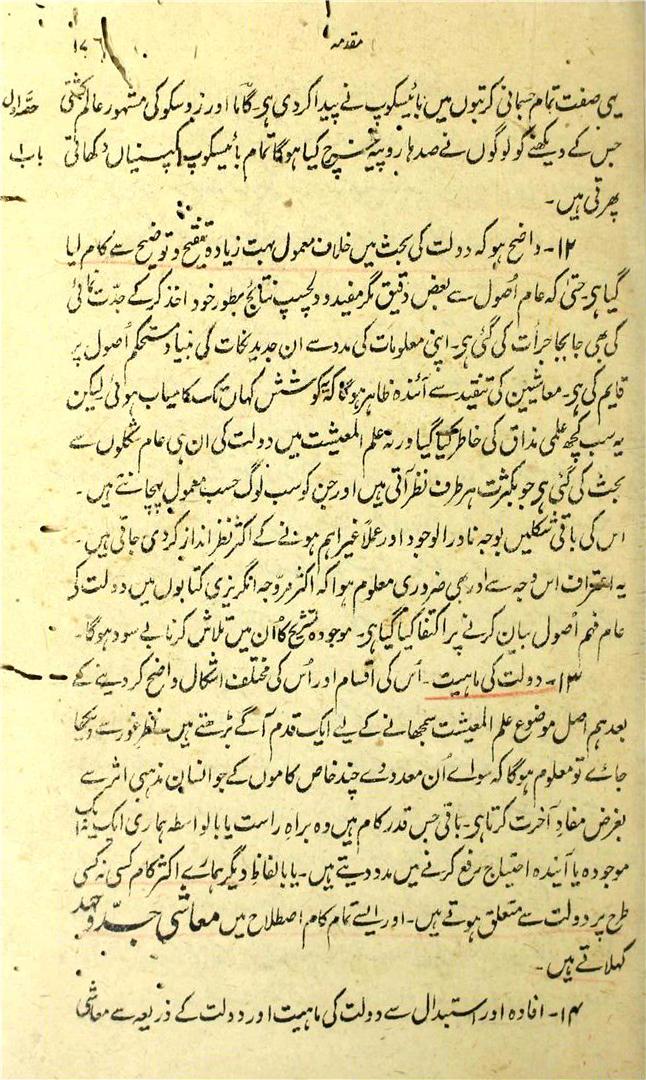 مقدمہ
۱۷۶
یہی صفت تمام جسمانی کرتبوں میں بائیسکوپ نے پیدا کردی ہی۔ گاما اور زبوسکو کی مشہور عالم کشتی
حصّہ اول
جس کے دیکھنے کو لوگوں نے صدہا روپیہ خرچ کیا ہوگا تمام بائیسکوپ کمپنیاں دکھاتی
باب ۱
پھرتی ہیں۔
۱۲۔ واضح ہو کہ دولت کی بحث میں خلاف معمول بہت زیادہ تنقیح و توضیح سے کام لیا
گیا ہی۔ حتیٰ کہ عام اُصول سے بعض دقیق مگر مفید و دلچسپ نتائج بطور خود اخذ کرکے جدّت نمائی
کی بھی جابجا جرأت کی گئی ہی۔ اپنی معلومات کی مدد سے ان جدید نکات کی بنیاد مستحکم اُصول پر
قایم کی ہی۔ معاشیین کی تنقید سے آئندہ ظاہر ہوگا کہ یہ کوشش کہاں تک کامیاب ہوئی لیکن
یہ سب کچھ علمی مذاق کی خاطر کیا گیا ورنہ علم المعیشت میں دولت کی ان ہی عام شکلوں سے
بحث کی گئی ہی جو بکثرت ہر طرف نظر آتی ہیں اور جن کو سب لوگ حسب معمول پہچانتے ہیں۔
اس کی باقی شکلیں بوجہ نادر الوجود اور عملاً غیر اہم ہونے کے اکثر نظر انداز کردی جاتی ہیں۔
یہ اعتراف اس وجہ سے اور بھی ضروری معلوم ہوا کہ اکثر مروّجہ انگریزی کتابوں میں دولت کی
عام فہم اُصول بیان کرنے پر اکتفا کیا گیا ہی۔ موجودہ تشریح کا اُن میں تلاش کرنا بے سود ہوگا۔
۱۳۔ دولت کی ماہیت۔ اُس کی اقسام اور اُس کی مختلف اشکال واضح کر دینے کے
بعد ہم اصل موضوع علم المعیشت سمجھانے کے لیے ایک قدم آگے بڑھتے ہیں۔ نظر غور سے دیکھا
جائے تو معلوم ہوگا کہ سوائے اُن معدودے چند خاص کاموں کے جو انسان مذہبی اثر سے
بغرض مفاد آخرت کرتا ہی۔ باقی جس قدر کام ہیں وہ براہِ راست یا بالواسطہ ہماری ایک نہ ایک
موجودہ یا آیندہ احتیاج رفع کرنے میں مدد دیتے ہیں۔ یا بالفاظِ دیگر ہمارے اکثر کام کسی نہ کسی
طرح پر دولت سے متعلق ہوتے ہیں۔ اور ایسے تمام کام اصطلاح میں معاشی جدّ و جہد
کہلاتے ہیں۔
۱۴۔ افادہ اور استبدال سے دولت کی ماہیت اور دولت کے ذریعہ سے معاشی